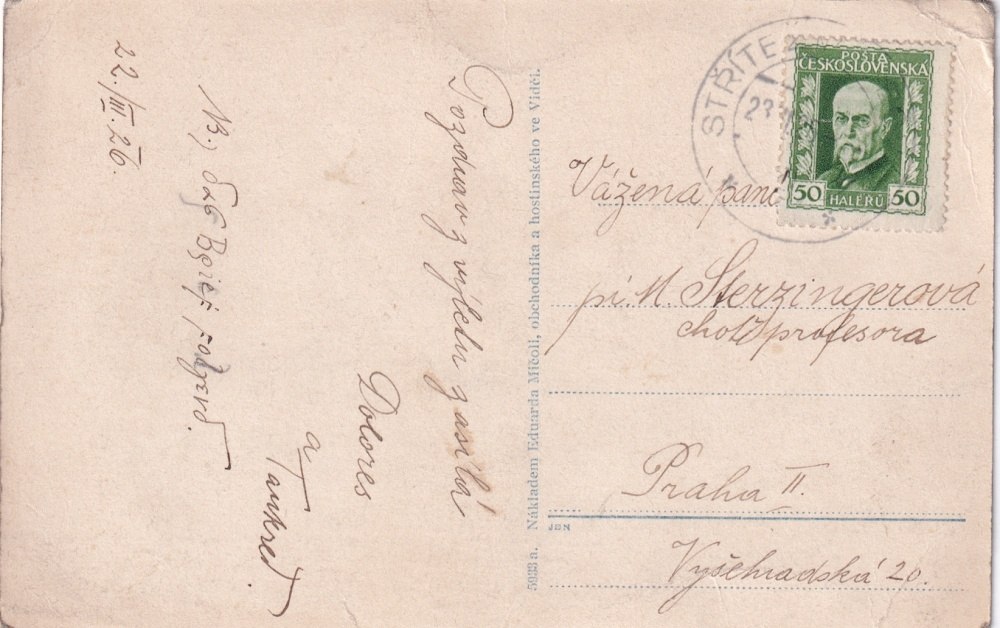 22./III.26.
Pozdrav z výletu zasílá
Dolores
a
Tankred.
NB.) Brief folgend.
5933 a. Nákladem Eduarda Mičoli, obchodníka a hostinského ve Vidči.
STŘÍTEŽ
23
POŠTA
ČESKOSLOVENSKÁ
50 HALÉŘŮ 50
Vážená paní
pí. M. Sterzingerová
choť profesora
Praha II.
Vyšehradská 20.